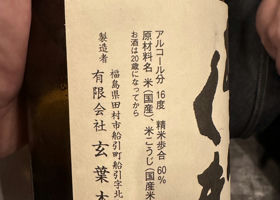 アルコール分 16度 精米歩合 60%
原材料名 米(国産)、米こうじ(国産米
お酒は20歳になってから
製造者
福島県田村市船引町船引字北
有限会社 玄葉本